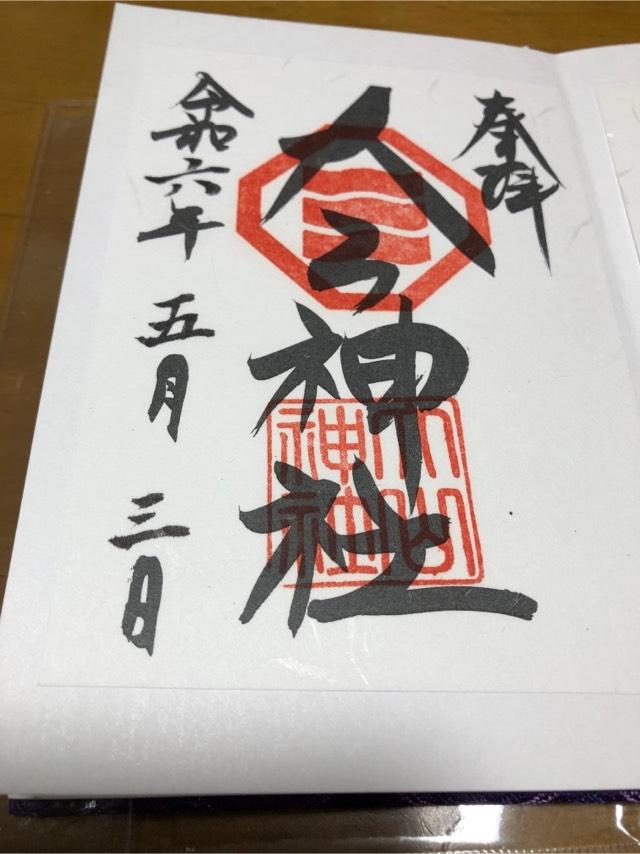 奉拝
大山神社
令和六年 五月 三日
大山
神社